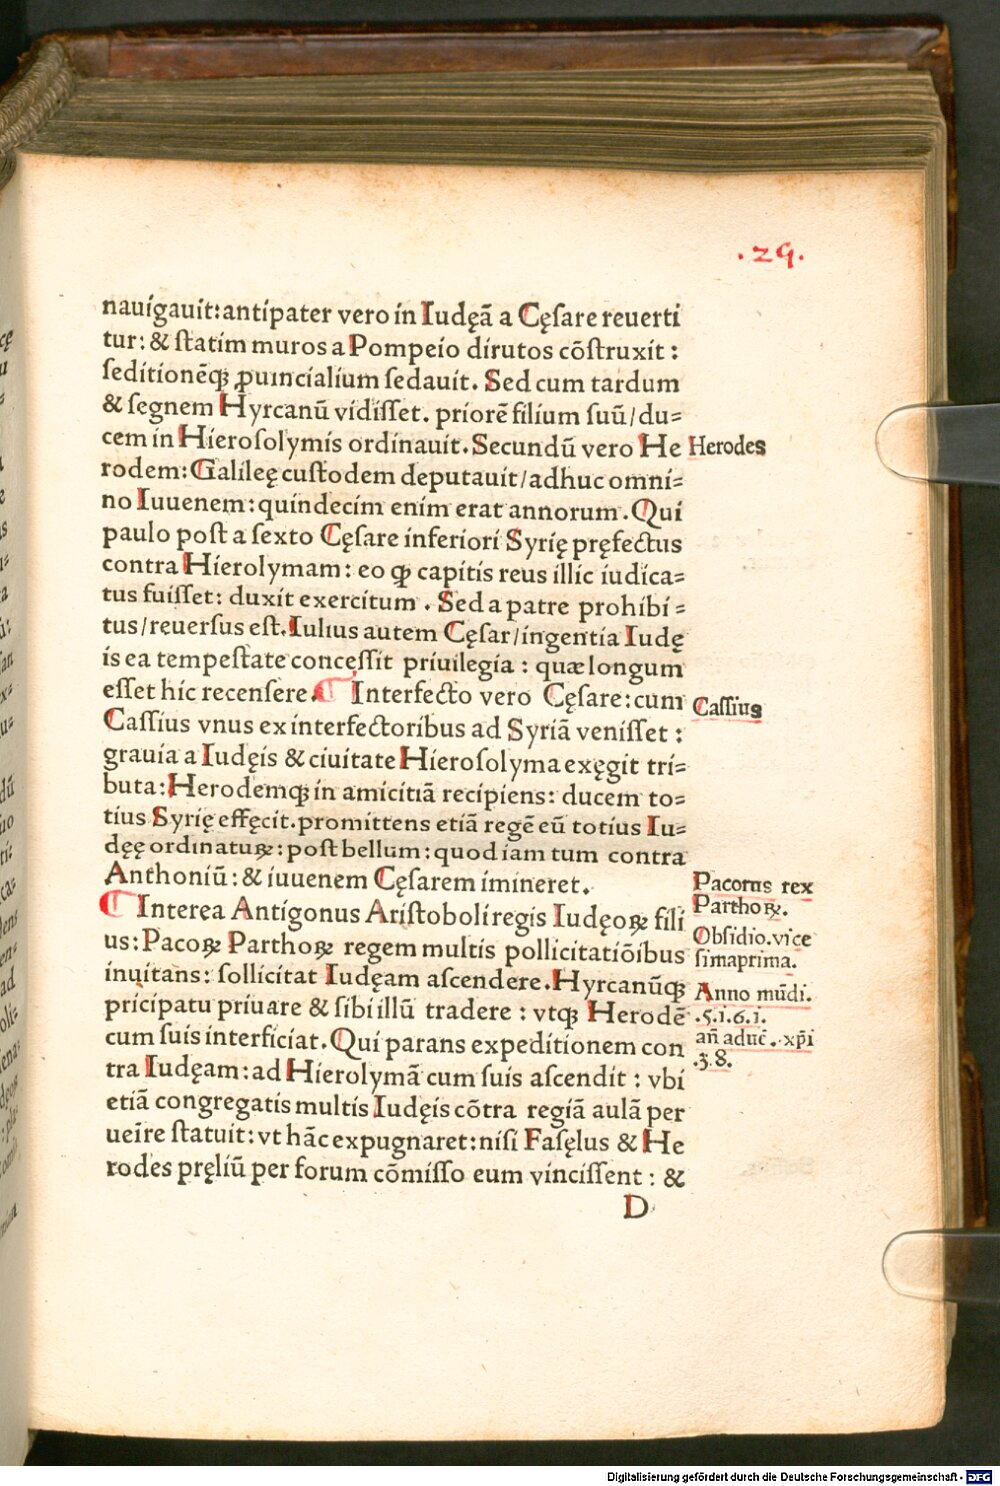 .29.
nauigauit:antipater vero in Iudęā a Cęſare reuerti
tur: & ſtatim muros a Pompeio dirutos cōſtruxit :
ſeditionēqꝫ ꝓuincialium ſedauit. Sed cum tardum
& ſegnem Hyrcanū vidiſſet. priorē filium ſuū/du=
cem in Hieroſolymis ordinauit. Secundū vero He
rodem: Galileę cuſtodem deputauit/adhuc omni=
no Iuuenem: quindecim enim erat annorum. Qui
paulo poſt a ſexto Cęſare inferiori Syrię pręfectus
contra Hierolymam: eo ꝙ capitis reus illic iudica=
tus fuiſſet: duxit exercitum . Sed a patre prohibi =
tus/reuerſus eſt. Iulius autem Cęſar/ingentia Iudę
is ea tempeſtate conceſſit priuilegia : quæ longum
eſſet hic recenſere. ¶ Interfecto vero Cęſare: cum
Caſſius vnus ex interfectoribus ad Syriā veniſſet :
grauia a Iudęis & ciuitate Hieroſolyma exęgit tri=
buta: Herodemqꝫ in amicitiā recipiens: ducem to=
tius Syrię effęcit. promittens etiā regē eū totius Iu=
dęę ordinatuꝝ: poſt bellum: quod iam tum contra
Anthoniū: & iuuenem Cęſarem imineret.
¶ Interea Antigonus Ariſtoboli regis Iudęoꝝ fili
us: Pacoꝝ Parthoꝝ regem multis pollicitatiōibus
inuitans: ſollicitat Iudęam aſcendere. Hyrcanūqꝫ
pricipatu priuare & ſibi illū tradere : vtqꝫ Herodē
cum ſuis interficiat. Qui parans expeditionem con
tra Iudęam: ad Hierolymā cum ſuis aſcendit : vbi
etiā congregatis multis Iudęis cōtra regiā aulā per
ueīre ſtatuit: vt hāc expugnaret: niſi Faſęlus & He
rodes pręliū per forum cōmiſſo eum vinciſſent : &
D
Herodes
Caſſius
Pacorus rex
Parthoꝝ.
Obſidio.vice
ſimaprima.
Anno mūdi.
.5.1.6.1.
an̄ aduē. xp̄i
.3.8.
Digitalisierung gefördert durch die Deutsche Forschungsgemeinschaft - DFG